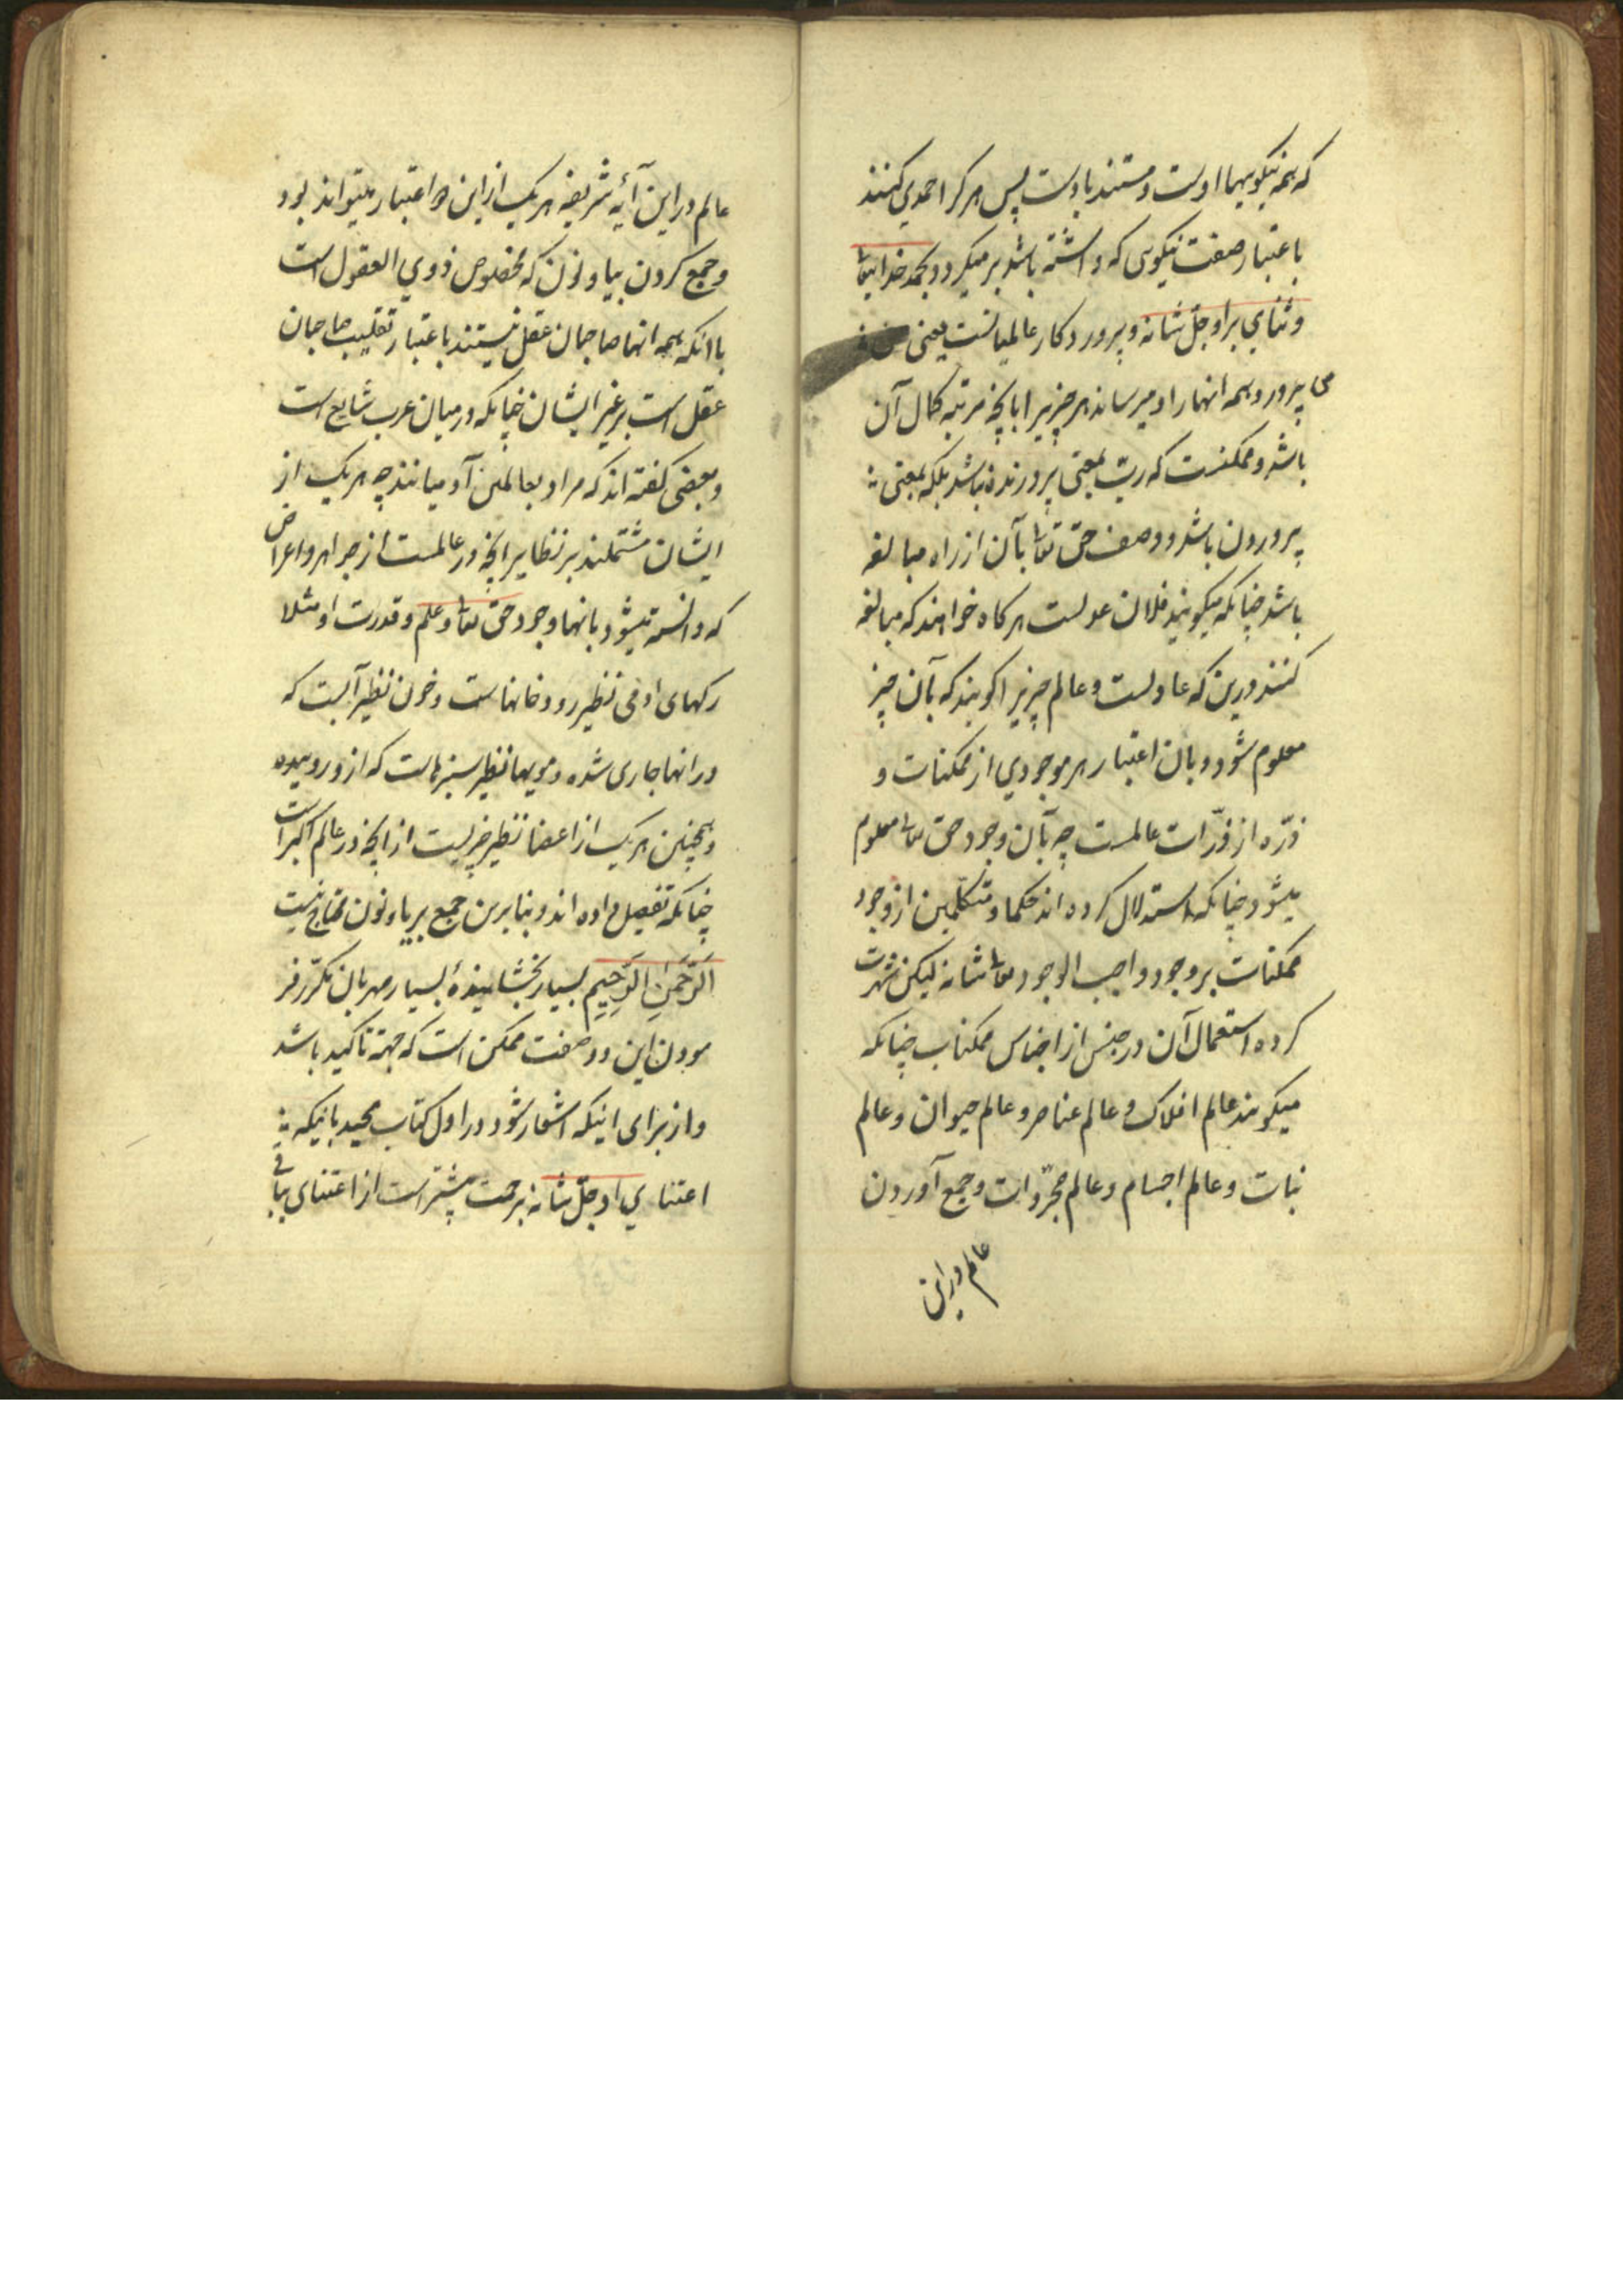 که همه نیکویهها اوست و مستند باوست پس هر کرا حمدی کنند
باعتبار صفت نیکویی که داشته باشد بر میگردد بحمد خدایتعا
و ثنای بر او جلّ شانه و پروردکار عالمیانست یعنی
می پرورد همه انها را و میرساند هر چیزیرا بآنچه مرتبه کمال آن
باشد و ممکنست که ربّ بمعنی پرورنده نباشد بلکه بمعنی
پروردن باشد و وصف حق تعا بآن از راه مبالغه
باشد چنانکه میکویند فلان عدلست هر کاه خواهند که مبالغه
کنند درین که عادلست و عالم چیزیرا کویند که بآن چیز
معلوم شود و بان اعتبار هر موجودی از ممکنات و
ذرّه از ذرّات عالمست چه بآن وجود حق تعا معلوم
میشود چنانکه استدلال کرده اند حکما و متکلمین از وجود
ممکنات بر وجود واجب الوجود تعا شانه لیکن شهرت
کرده استعمال آن در جنس از اجناس ممکنات چنانکه
میکویند عالم افلاک و عالم عناصر و عالم حیوان و عالم
نبات و عالم اجسام و عالم مجرّدات و جمع آوردن
عالم در این
عالم در این آیه شریفه هر یک از این دو اعتبار میتواند بود
و جمع کردن بیا و نون که مخصوص ذوی العقول است
با انکه همه انها صاحبان عقل نیستند باعتبار تغلیب صاحبان
عقل است بر غیر ایشان چنانکه در میان عرب شایع است
و بعضی کفته اند که مراد بعالمین آدمیانند چه هر یک از
ایشان مشتملند بر نظایر انچه در عالمست از جواهر و اعراض
که دانسته میشود بانها وجود حق تعا و علم و قدرت او مثلا
رکهای ادمی نظیر رودخانهاست و خون نظیر آبست که
در انها جاری شده و مویها نظیر سبزهاست که از و روییده
و همچنین هر یک از اعضا نظیر چیزیست از انچه در عالم اکبر است
چنانکه تفصیل داده اند و بنابرین جمع بر یا و نون محتاج نیست
الرَّحمنِ الرَّحِیم بسیار بخشاینده بسیار مهربان مکرّر فر
مودن این دو صفت ممکن است که جهة تاکید باشد
و از برای اینکه اشعار شود در اول کتاب مجید بانیکه
اعتنای او جلّ شانه برحمت بیشتر است از اعتنای بباقی